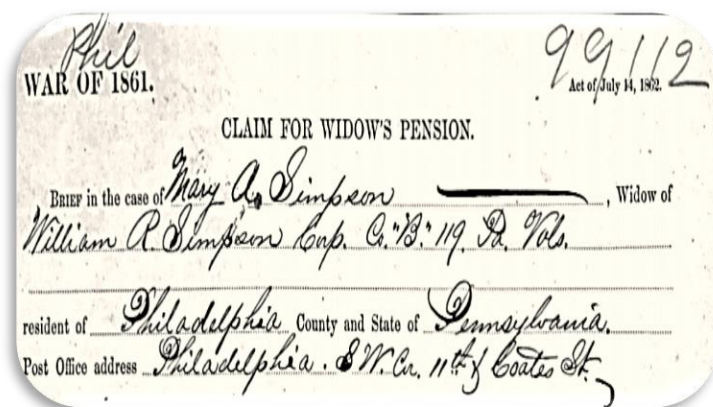 Phil
99112
WAR OF 1861.
Act of July 14, 1862.
CLAIM FOR WIDOW'S PENSION.
BRIEF in the case of Mary A. Simpson, Widow of
William R. Simpson Corp. Co. "B." 119 Pa. Vols.
resident of Philadelphia County and State of Pennsylvania.
Post Office address Philadelphia. S W. Cr. 11th & Coates St.